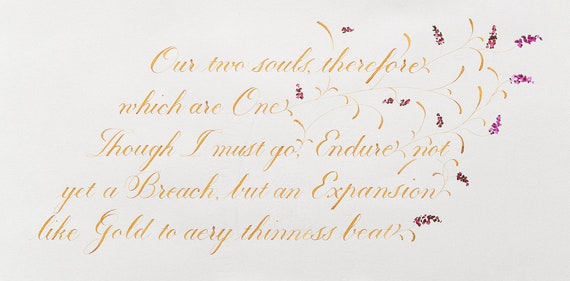 Our two souls, therefore
which are One,
Though I must go, Endure not
yet a Breach, but an Expansion
like Gold to aery thinness beat.